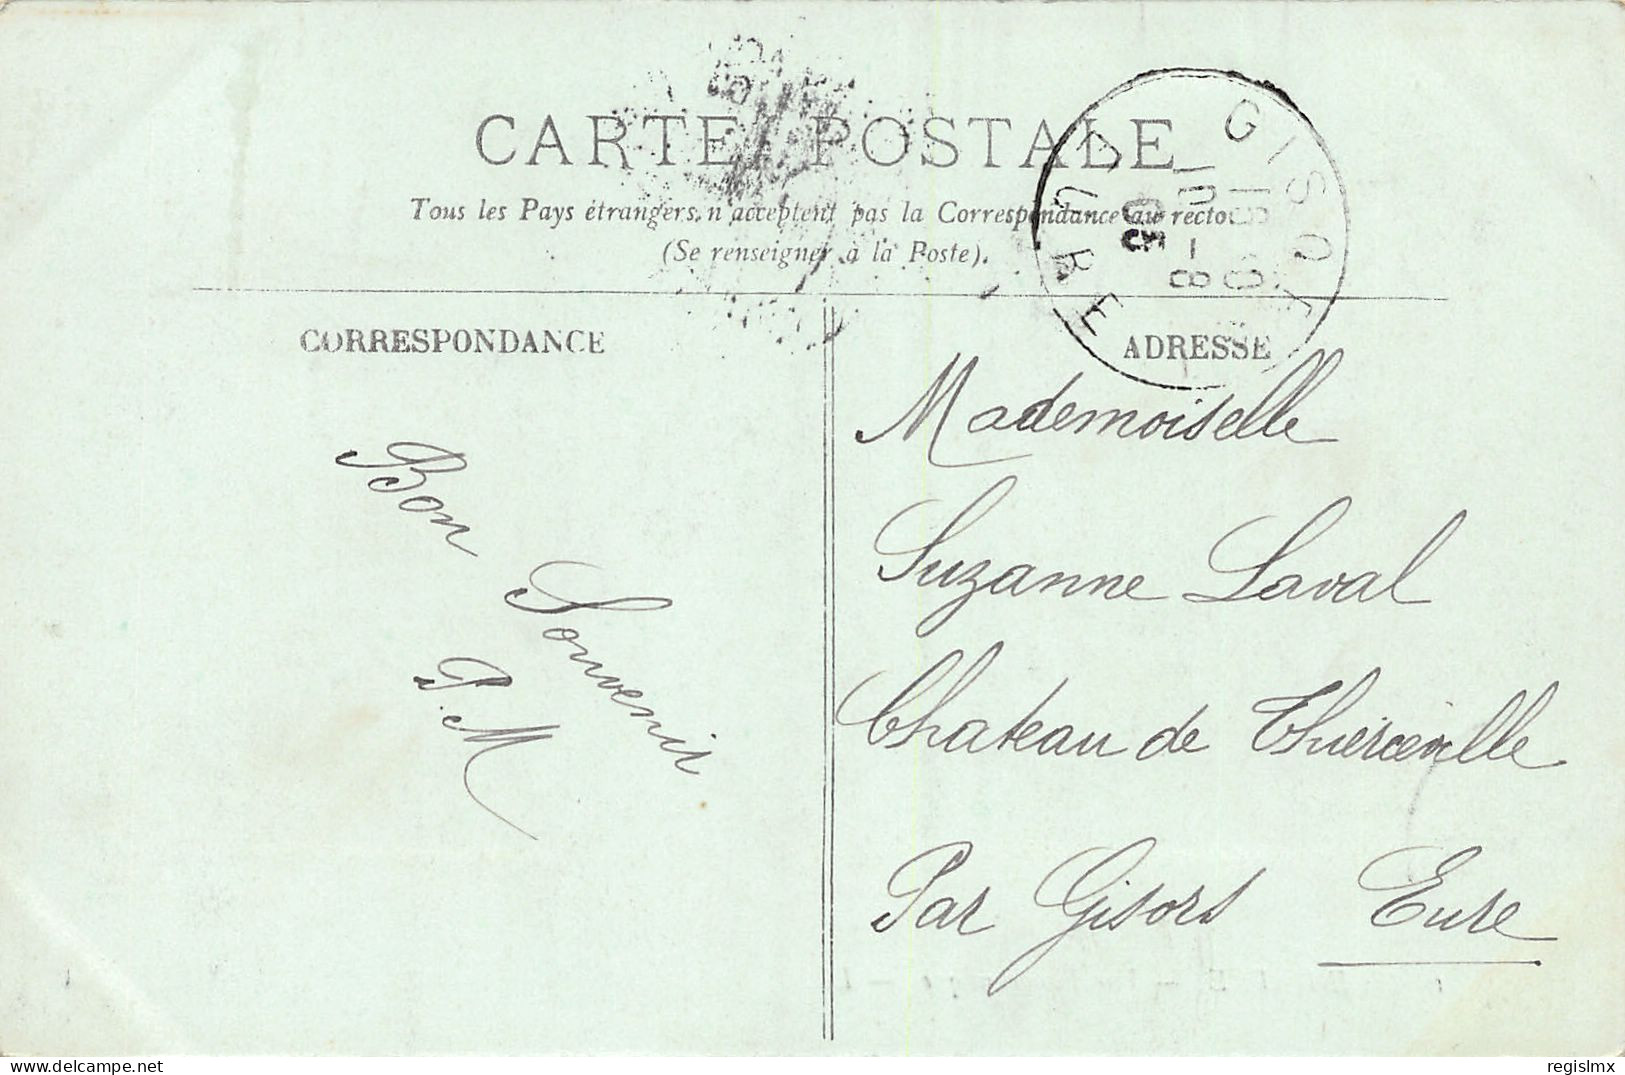 CARTE POSTALE
Tous les Pays étrangers n'acceptent pas la Correspondance au recto
(Se renseigner à la Poste).
CORRESPONDANCE
ADRESSE
GISORS
EURE
05
Bon
Souvenir
P. M
Mademoiselle
Suzanne Laval
Chateau de Thierceville
Par Gisors Eure
regislmx